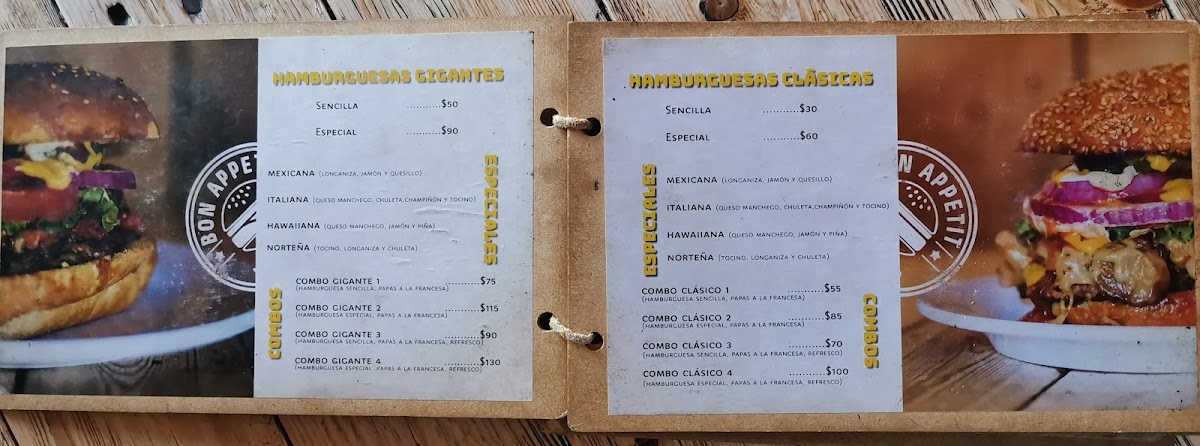 BON APPETIT
HAMBURGUESAS GIGANTES
SENCILLA ...........$50
ESPECIAL ...........$90
ESPECIALES
MEXICANA (LONGANIZA, JAMÓN Y QUESILLO)
ITALIANA (QUESO MANCHEGO, CHULETA,CHAMPIÑÓN Y TOCINO)
HAWAIIANA (QUESO MANCHEGO, JAMÓN Y PIÑA)
NORTEÑA (TOCINO, LONGANIZA Y CHULETA)
COMBOS
COMBO GIGANTE 1 ...........$75
(HAMBURGUESA SENCILLA, PAPAS A LA FRANCESA)
COMBO GIGANTE 2 ...........$115
(HAMBURGUESA ESPECIAL, PAPAS A LA FRANCESA)
COMBO GIGANTE 3 ...........$90
(HAMBURGUESA SENCILLA, PAPAS A LA FRANCESA, REFRESCO)
COMBO GIGANTE 4 ...........$130
(HAMBURGUESA ESPECIAL, PAPAS A LA FRANCESA, REFRESCO)
HAMBURGUESAS CLÁSICAS
SENCILLA ...........$30
ESPECIAL ...........$60
ESPECIALES
MEXICANA (LONGANIZA, JAMÓN Y QUESILLO)
ITALIANA (QUESO MANCHEGO, CHULETA,CHAMPIÑÓN Y TOCINO)
HAWAIIANA (QUESO MANCHEGO, JAMÓN Y PIÑA)
NORTEÑA (TOCINO, LONGANIZA Y CHULETA)
COMBOS
COMBO CLÁSICO 1 ...........$55
(HAMBURGUESA SENCILLA, PAPAS A LA FRANCESA)
COMBO CLÁSICO 2 ...........$85
(HAMBURGUESA ESPECIAL, PAPAS A LA FRANCESA)
COMBO CLÁSICO 3 ...........$70
(HAMBURGUESA SENCILLA, PAPAS A LA FRANCESA, REFRESCO)
COMBO CLÁSICO 4 ...........$100
(HAMBURGUESA ESPECIAL, PAPAS A LA FRANCESA, REFRESCO)
APPETIT